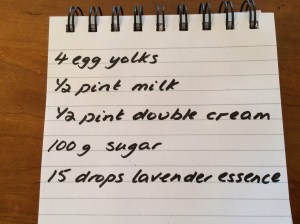 4 egg yolks
½ pint milk
½ pint double cream
100g sugar
15 drops lavender essence